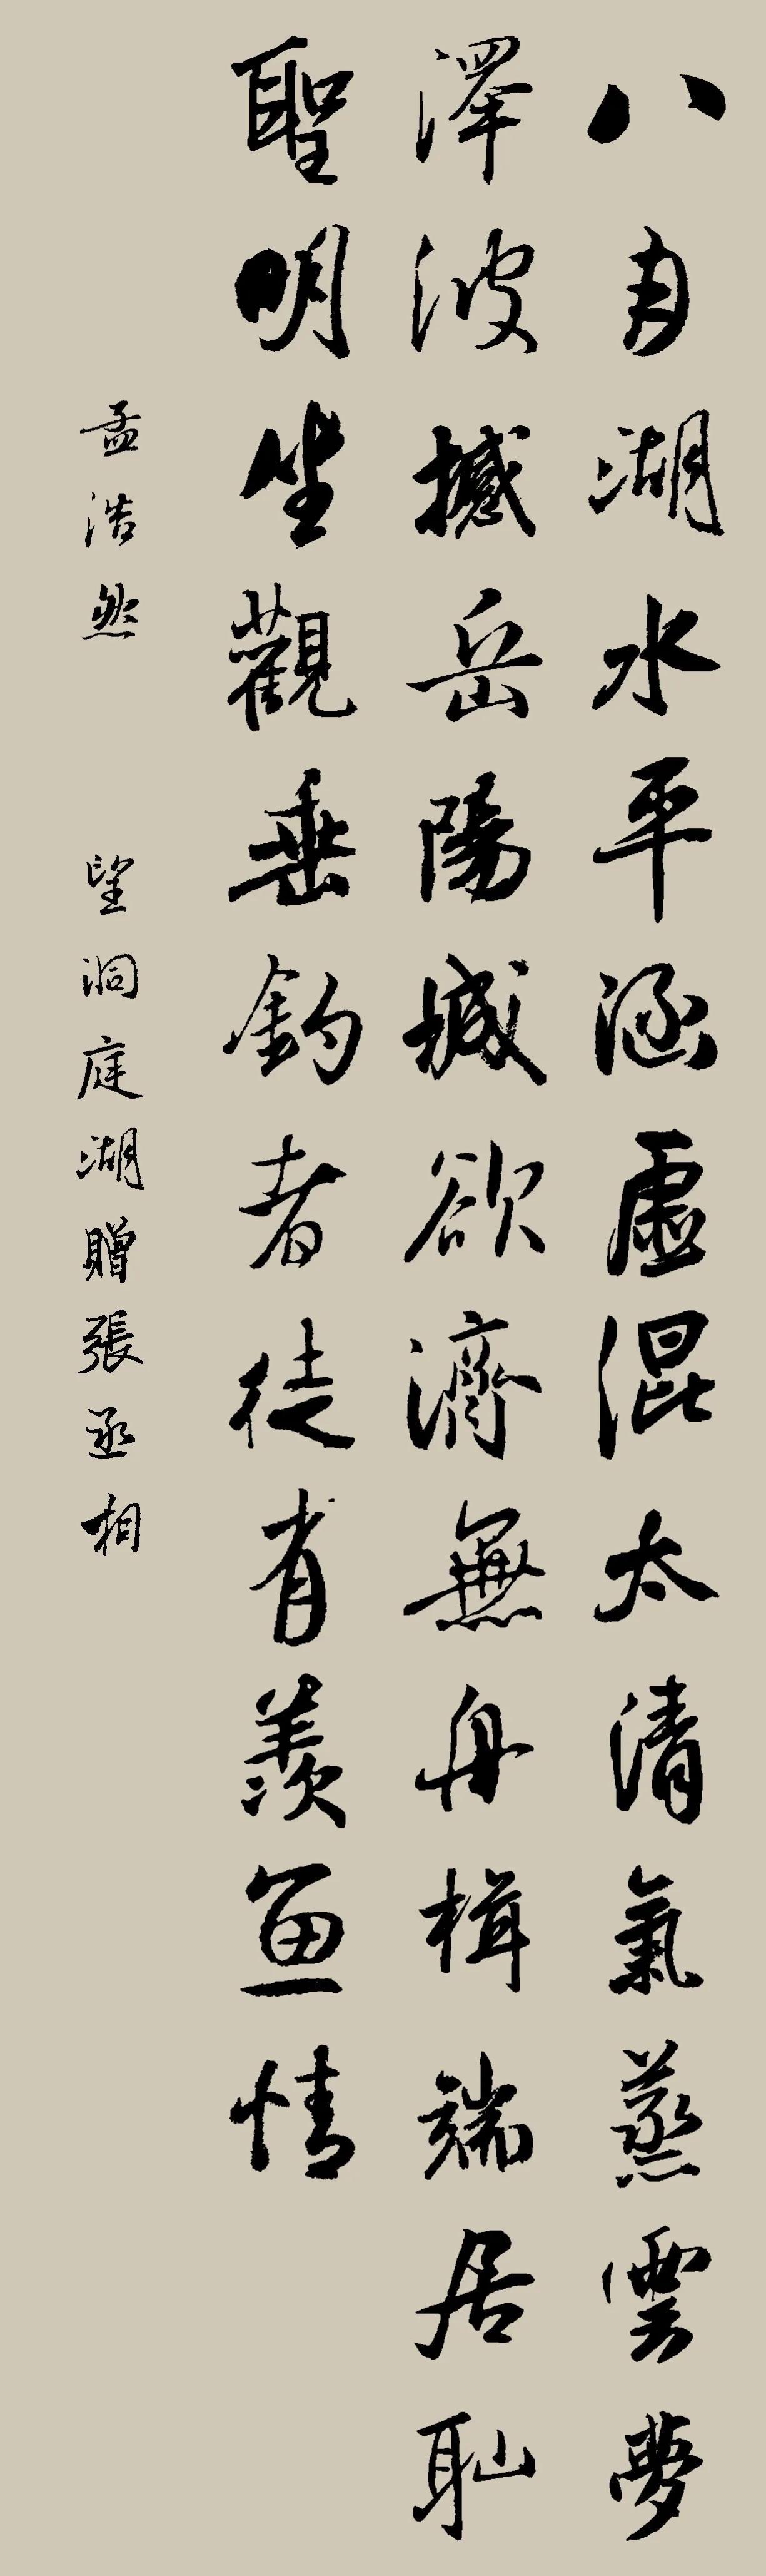 八月湖水平涵虛混太清氣蒸雲夢
澤波撼岳陽城欲濟無舟楫端居耻
聖明坐觀垂釣者徒有羨魚情
孟浩然 望洞庭湖贈張丞相